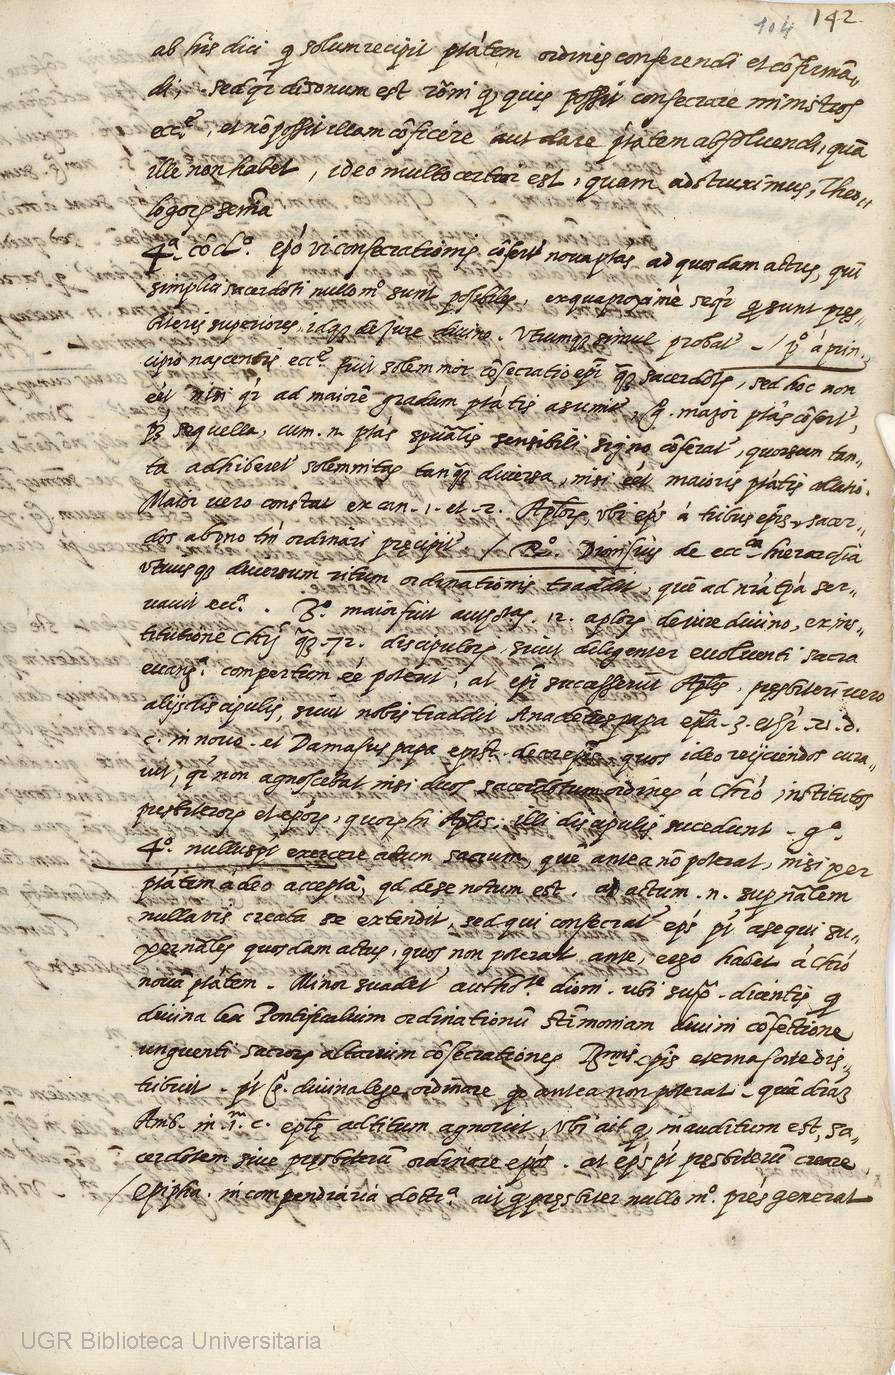 104 142
ab his dici q solum recipit ptãtem ordinis conferendi et cõfirmã-
di, sed qr dissonum est rõni q quis possit consecrare ministros
eccᵉ, et nõ possit illam cõficere aut dare ptãtem absoluendi, quã
ille non habet, ideo multo certior est, quam adstruximus, Theo-
logorũ sẽma
4ª coclº. epõ vi consecrationis cõfert nova ptãs ad quosdam actus, qui
simplici sacerdoti nullo mº sunt posibiles, ex qua proximè seqr q sunt pres-
biteris superiores, idq de jure divino. Utrumq simul probat - / pº á prin-
cipio nascentis eccᵉ fuit solemnior cõsecratio epi q sacerdotis, sed hoc non
eẽt nisi qr ad maiorẽ gradum ptãtis asumit, g. major ptãs cõfert,
sequella, cum .n. ptãs spũalis sensibili signo cõferat, quorsum tan-
ta adhiberet solemnitas tanq diversa, nisi eẽt maioris ptãtis
Maior vero constat ex can. 1. et 2. Aplorũ, ubi epũs á tribus epis, sacer-
dos ab uno tñ ordinari precipit. / 2º. Dionisius de eccᶜᵃ hierarchia
utriusq diversum ritum ordinationis traddit, quẽ ad nrã tpã ser-
vavit eccª. 3º. maior fuit 12. aplorũ de iure divino, ex ins-
titutione Chri q 72. discipulorũ, sicut diligenter evolventi sacra
evangª. compertum eẽ poterit, at epi successerũt Aplis, presbiteri vero
alijs discipulis, sicut nobis traddit Anacletus papa epla 3. et hr 21. d.
c. in novo. et Damasus papa epist. de corepis, quos ideo reijciendos cura-
vit, qr non agnoscebat nisi duos sacerdotum ordines á Chrõ institutos
presbiterorũ et epõrũ, quorũ hi Aplis, illi discipulis sucedunt - gº.
4º. nullus pt exercere actum sacrum, quẽ antea nõ poterat, nisi per
ptãtem á deo acceptã, qd de se notum est. ad actum .n. supnãlem
nulla vis creata se extendit, sed qui consecrat epũs pt asequi su-
pernãles quosdam actus, quos non poterat ante, ergo habet á Chrõ
novã ptãtem - Minor suadet authoᵗᵉ dioni. ubi supᵃ - dicentis q
divina lex Pontificalium ordinationũ stimoniam divini cõfectione
unguenti sacrorũ altarium cõsecrationes epis eterna sorte dis-
tribuit - pt g. divina lege ordinare q antea non poterat - quã
Amb. in 1ᵃᵐ. c. eple ad titum agnovit, ubi ait q inauditum est, sa-
cerdotem sive presbiterũ ordinare epõs. at epũs pt presbiterũ creare,
/ Epipha. in compendiaria doctrª ait q presbiter nullo mº. pres generat
UGR Biblioteca Universitaria